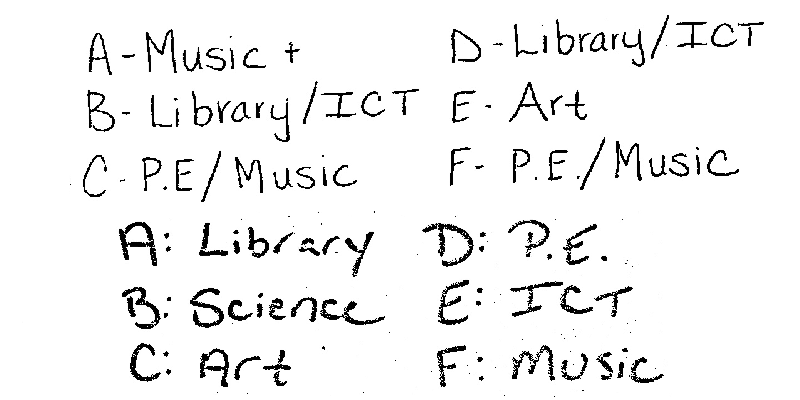 A-Music +
B- Library/ICT
C- P.E/Music
D-Library/ICT
E- Art
F- P.E./Music
A: Library
B: Science
C: Art
D: P.E.
E: ICT
F: Music